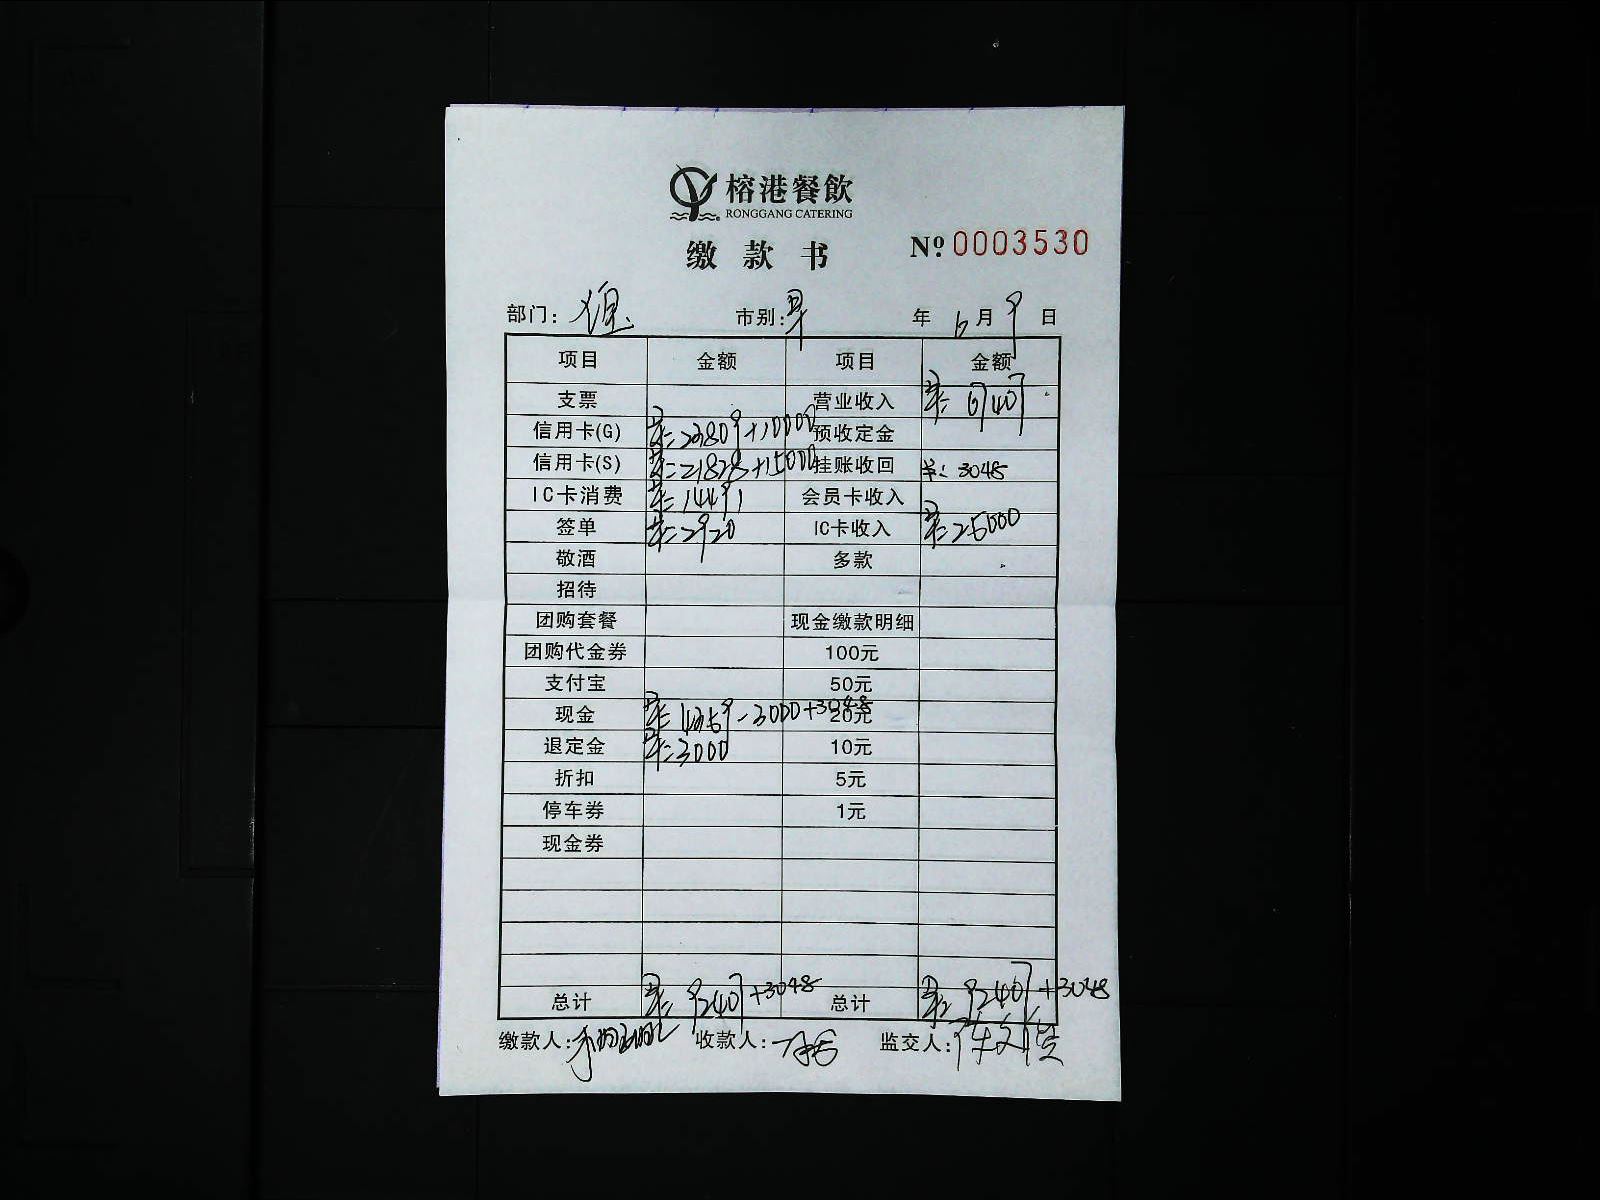 榕港餐飲
RONGGANG CATERING
缴款书 № 0003530
部门： 市别：早 年 6月9日
项目 金额 项目 金额
支票 营业收入 早：67407
信用卡(G) 早：22809+10000 预收定金
信用卡(S) 早：21828+15000 挂账收回 早：3048
IC卡消费 早：14491 会员卡收入
签单 早：2920 IC卡收入 早：25000
敬酒 多款
招待
团购套餐 现金缴款明细
团购代金券 100元
支付宝 50元
现金 早：4359-3000+3048 20元
退定金 早：3000 10元
折扣 5元
停车券 1元
现金券
总计 早：92407+3048 总计 早：92407+3048
缴款人： 收款人： 监交人：